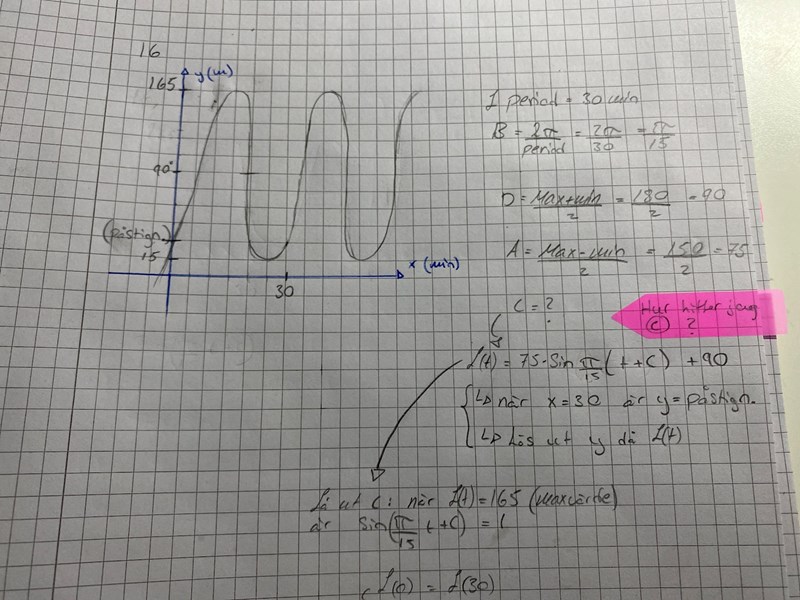 16
y (m)
165
90
(påstign.)
15
x (min)
30
1 period = 30 min
B = 2π/period = 2π/30 = π/15
D = Max+min/2 = 180/2 = 90
A = Max-min/2 = 150/2 = 75
C = ?
Hur hittar jag
C ?
f(t) = 75·Sin π/15 (t+C) +90
↳ när x=30 är y=påstign.
↳ Lös ut y då f(t)
Få ut C: när f(t) = 165 (maxvärde)
är Sin(π/15 t+C) = 1
f(0) = f(30)